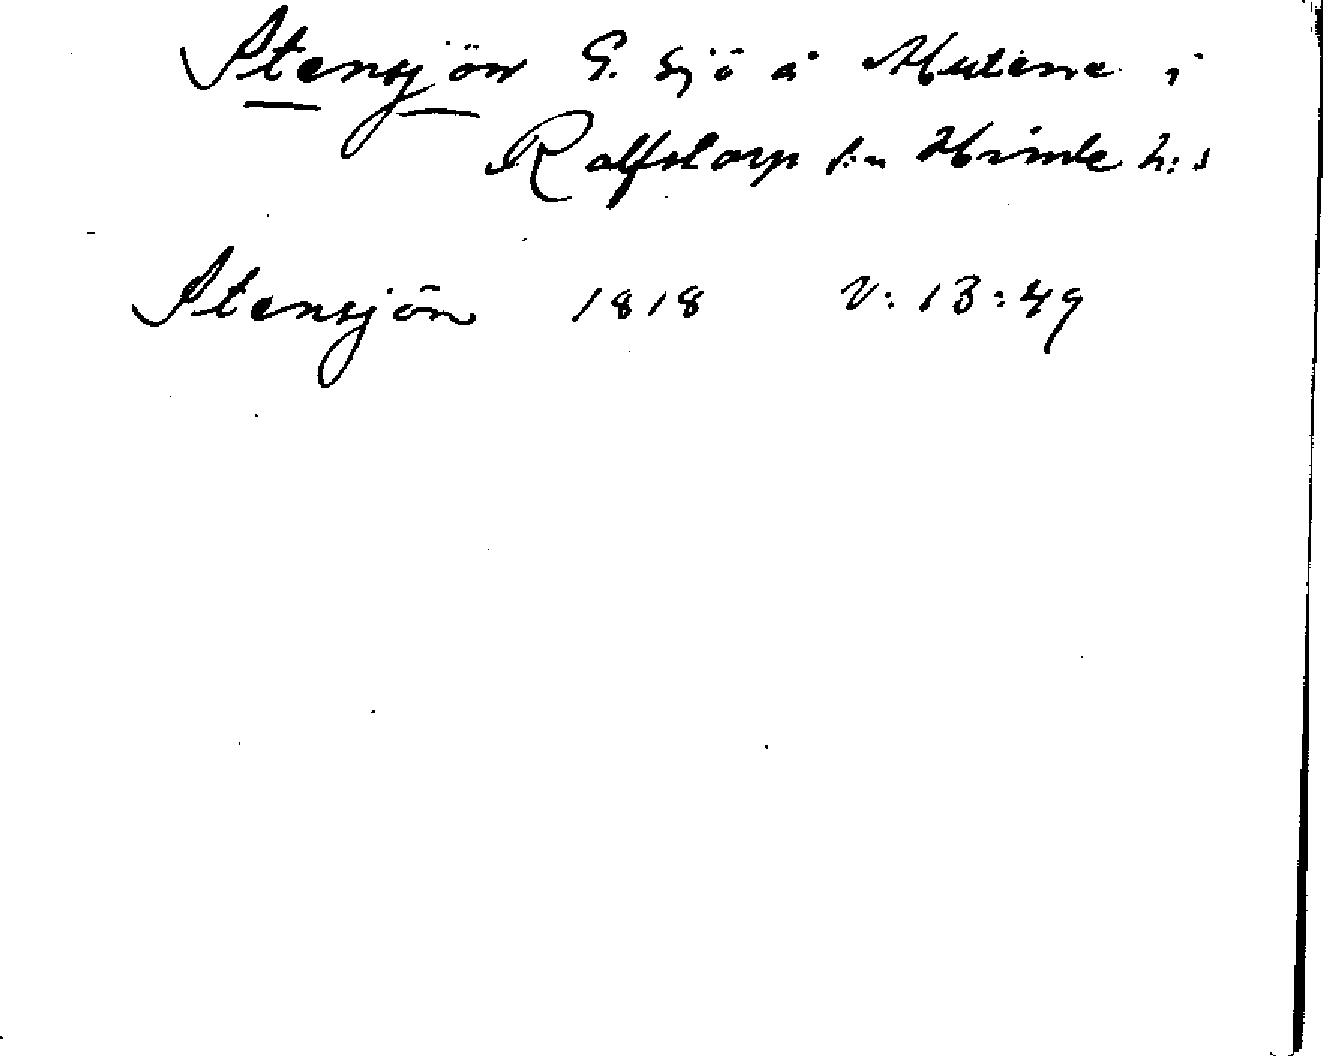 Stensjön G. sjö å Hulena i
Rolfstorp sn Himle h:d
Stensjön 1818 V: 13: 49